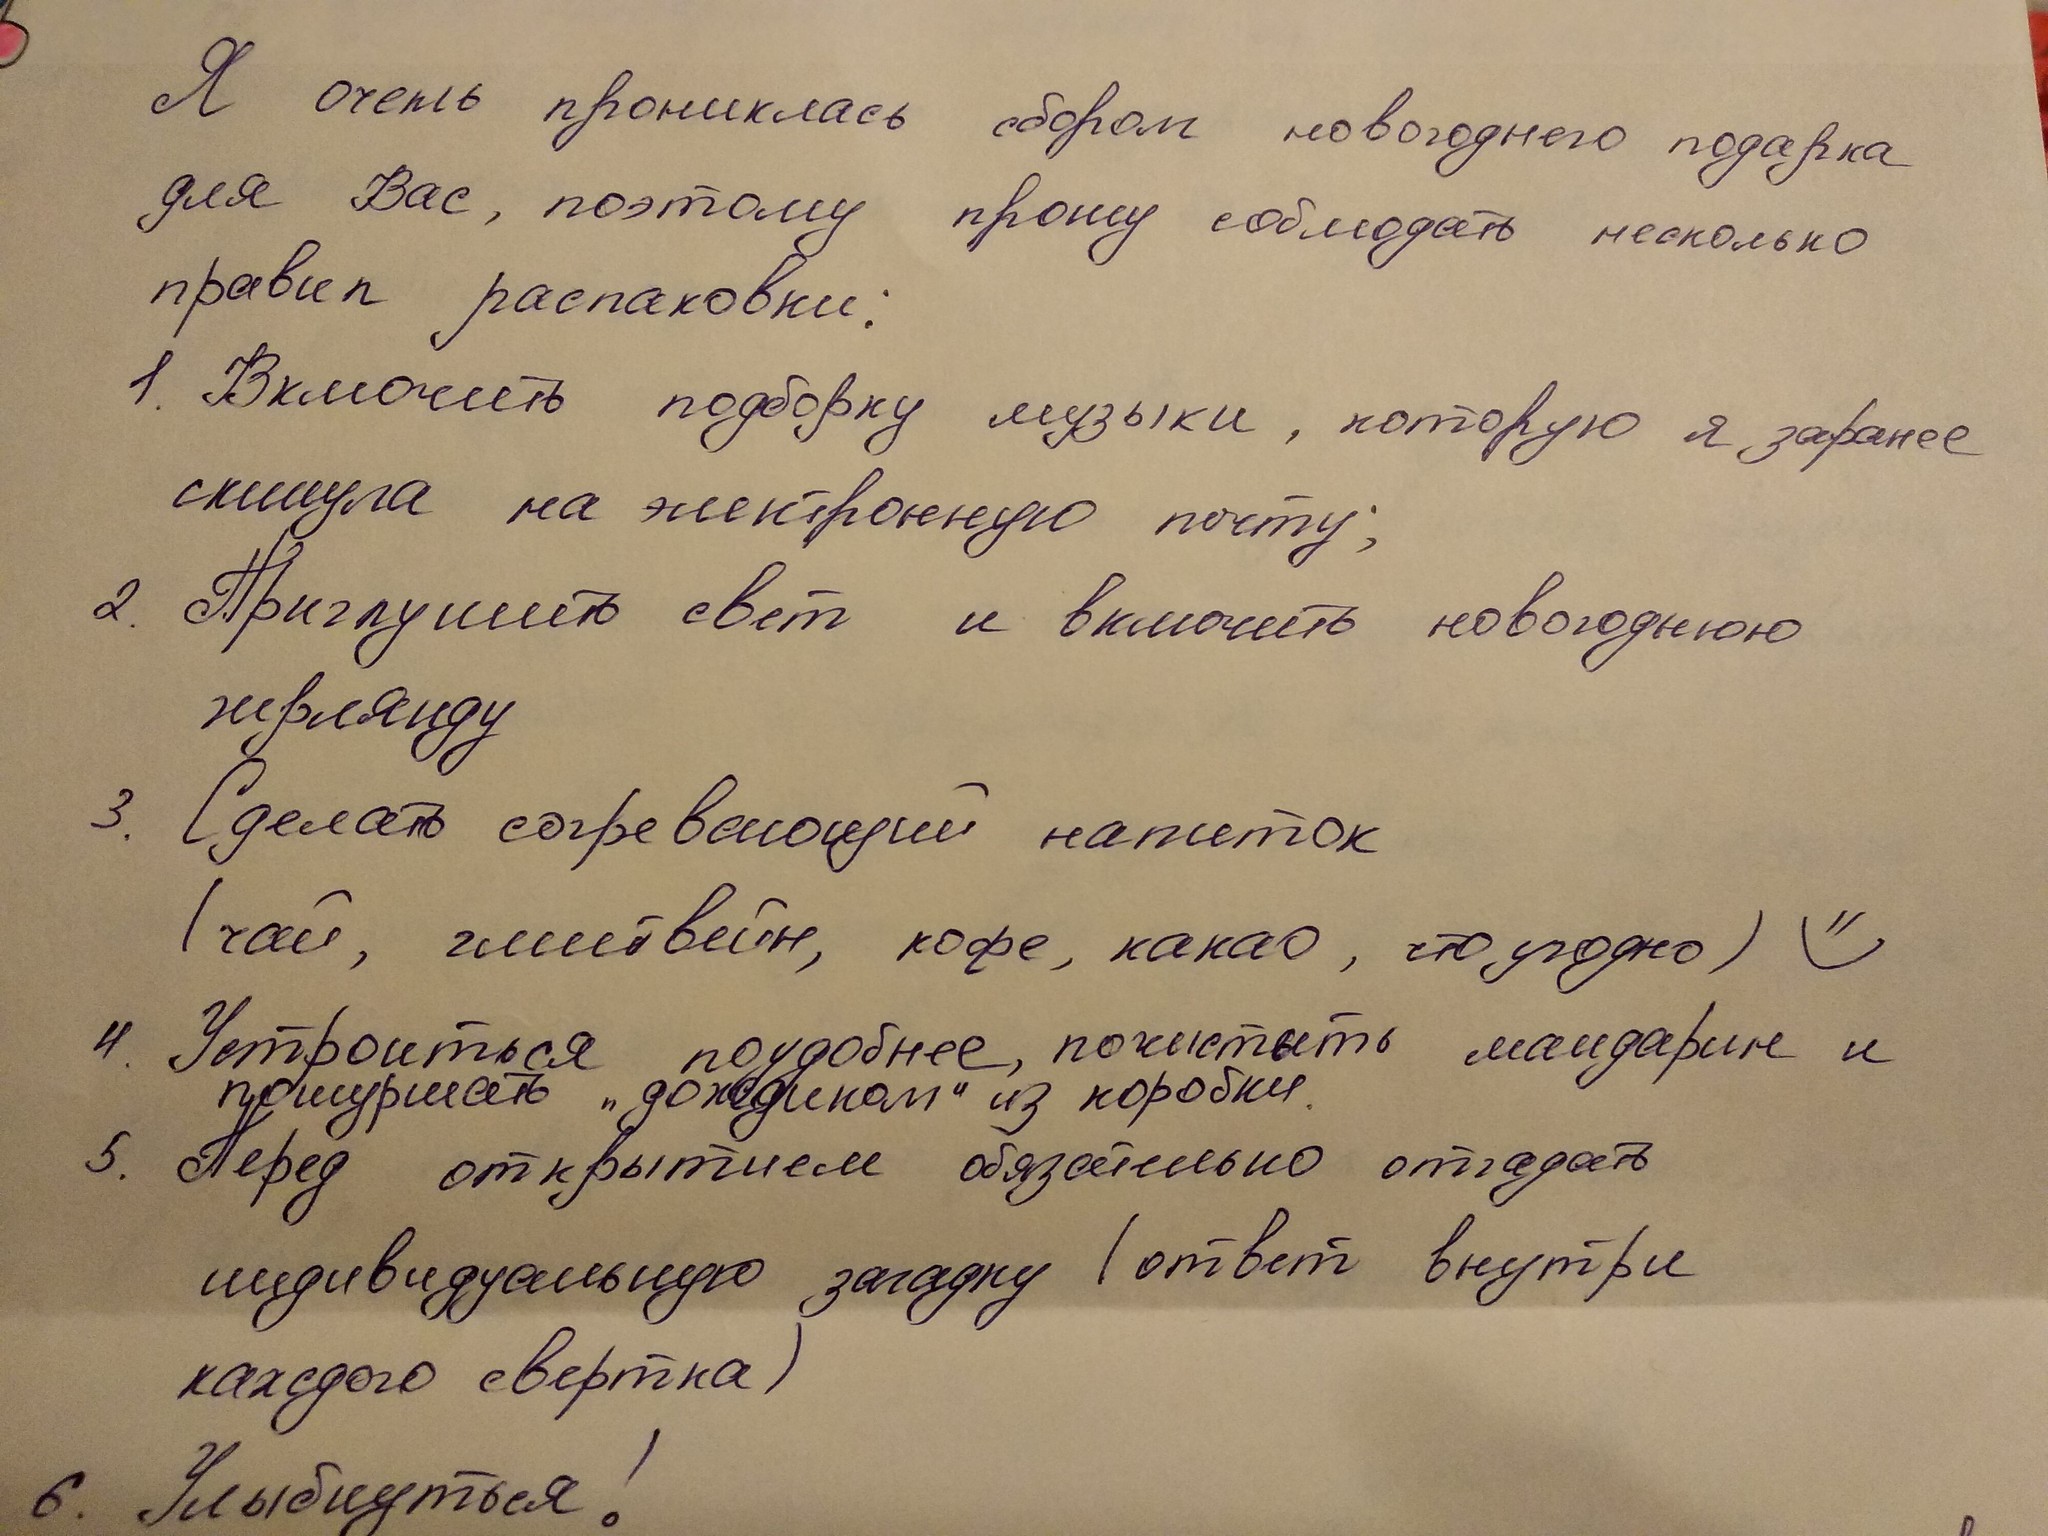 Я очень прониклась сбором новогоднего подарка
для Вас, поэтому прошу соблюдать несколько
правил распаковки:
1. Включить подборку музыки, которую я заранее
скинула на электронную почту;
2. Приглушить свет и включить новогоднюю
герлянду
3. Сделать согревающий напиток
(чай, глинтвейн, кофе, какао, что угодно)
4. Устроиться поудобнее, почистить мандарин и
пошуршать „дождиком" из коробки.
5. Перед открытием обязательно отгадать
индивидуальную загадку (ответ внутри
каждого свертка)
6. Улыбнуться!